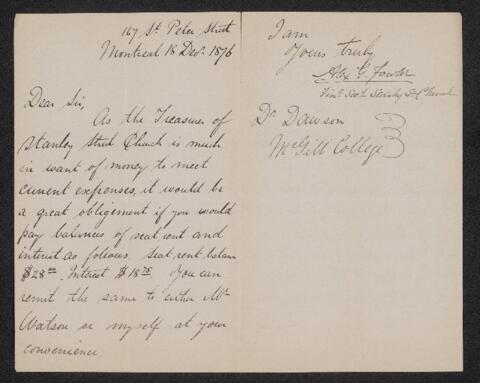 167 St. Peter Street
Montreal 18 Decr. 1876
Dear Sir,
As the Treasurer of
Stanley Street Church is much
in want of money to meet
current expenses, it would be
a great obligement if you would
pay balances of seat rent and
interest as follows. Seat rent balance
$28.00. Interest $18.75 You can
remit the same to either Mr
Watson or myself at your
convenience
I am
Yours truly
Alex G. Fowler
Stanley St Church
Dr. Dawson
McGill College